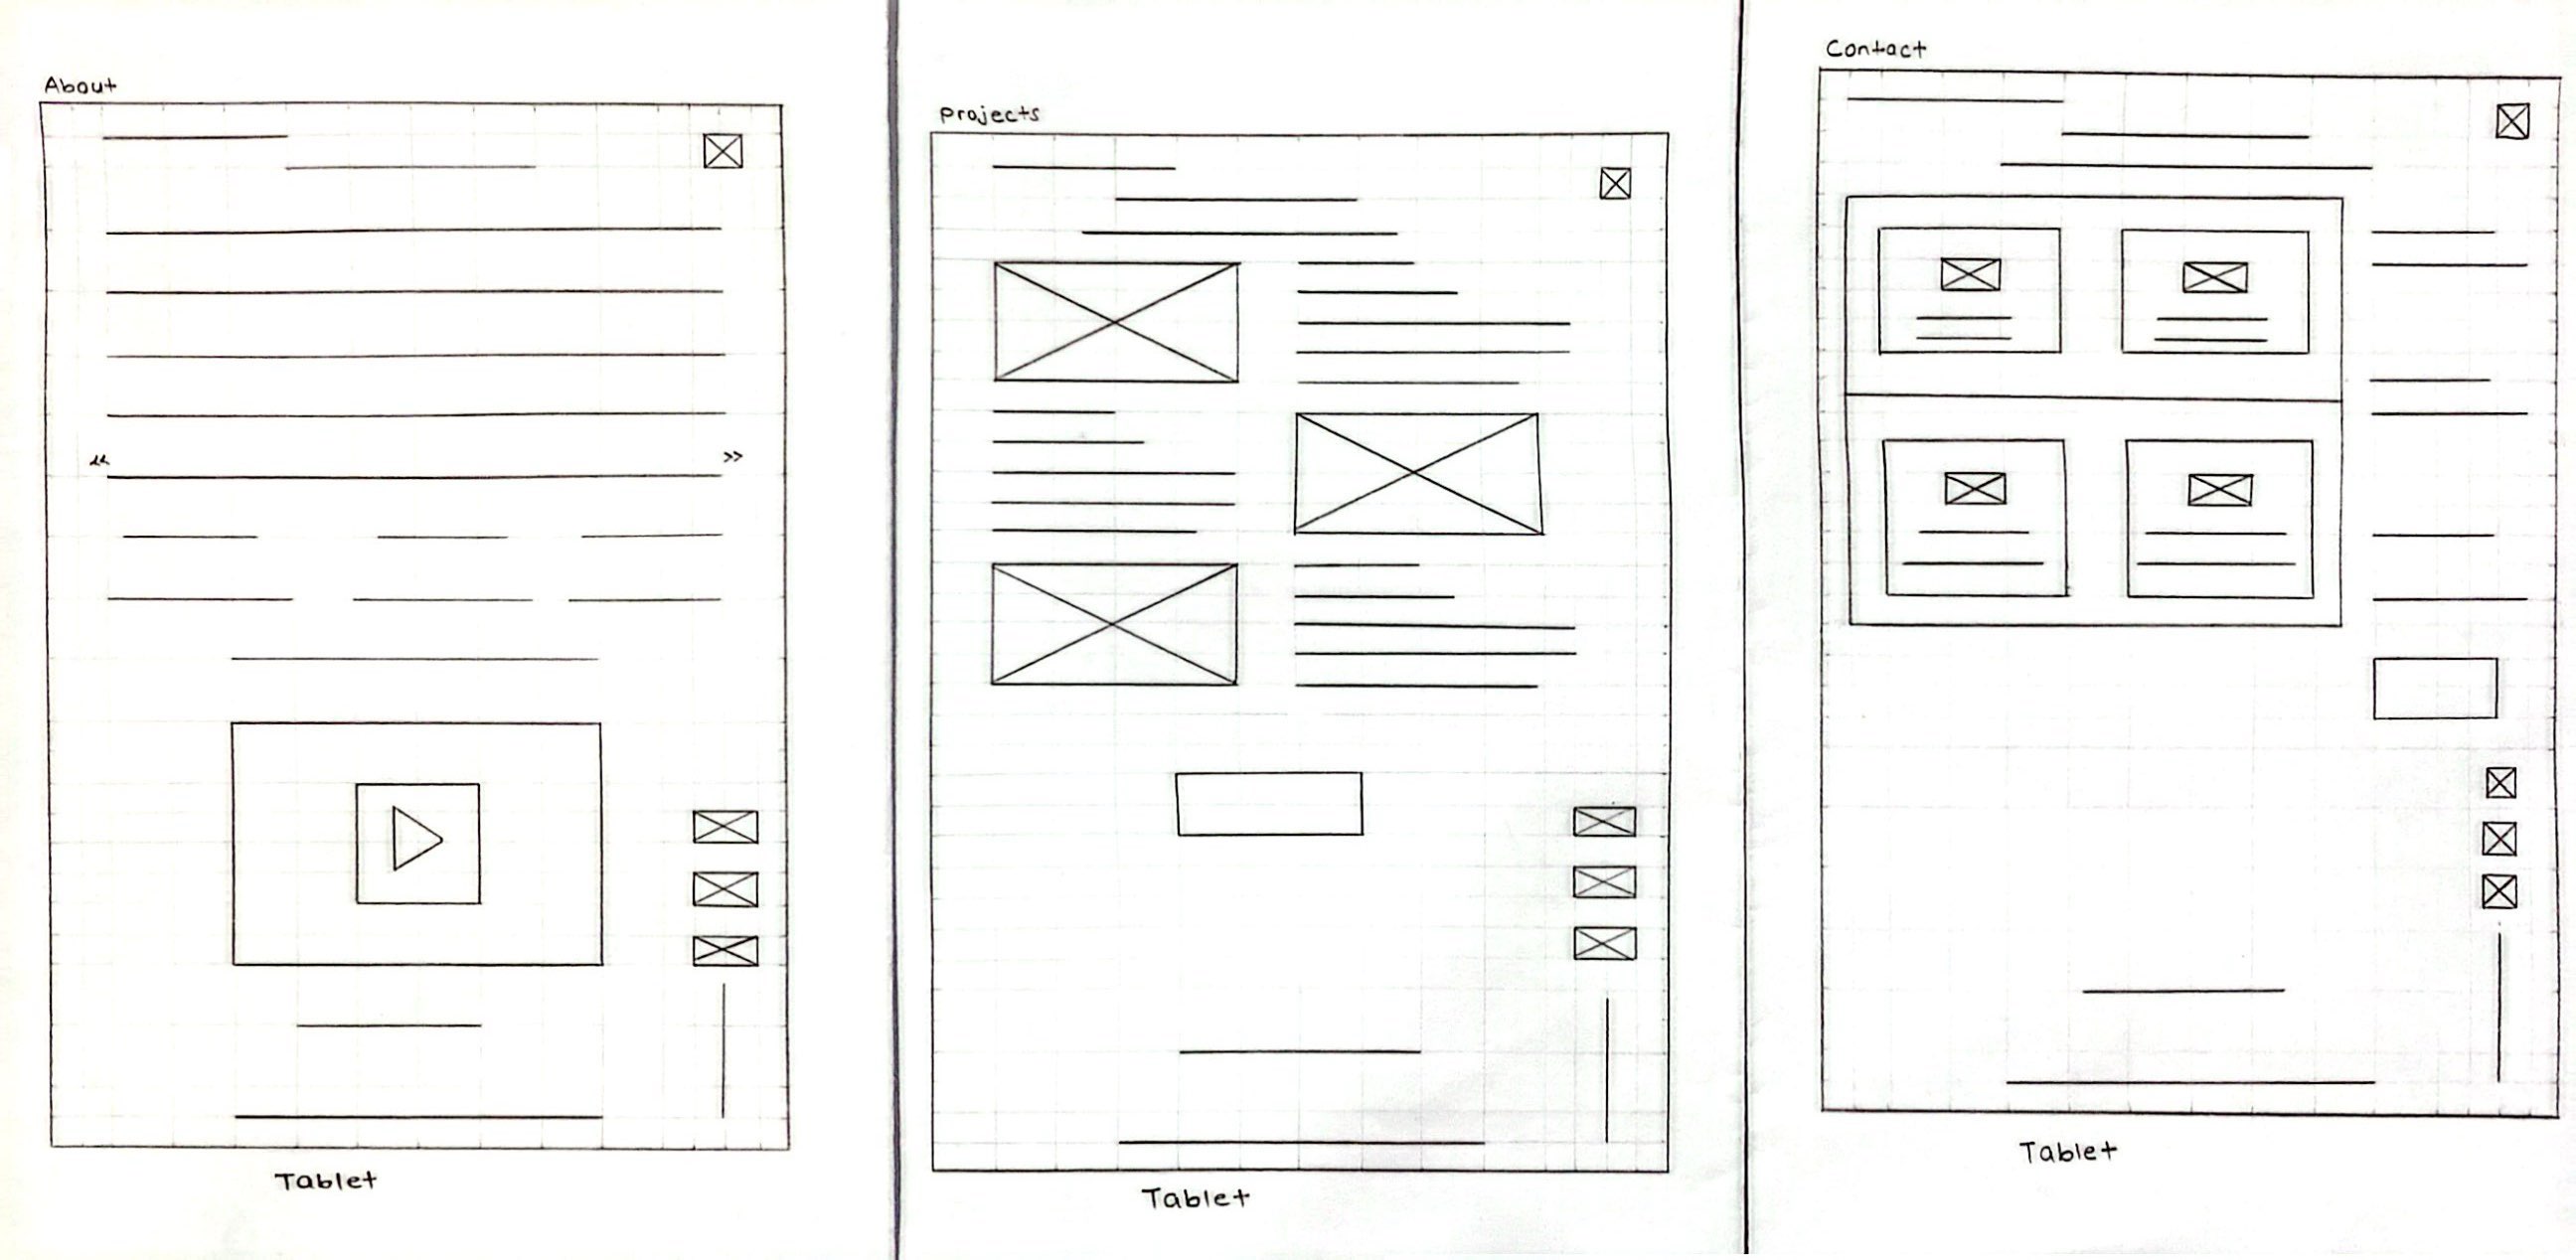 About
«
»
Tablet
Projects
Tablet
Contact
Tablet